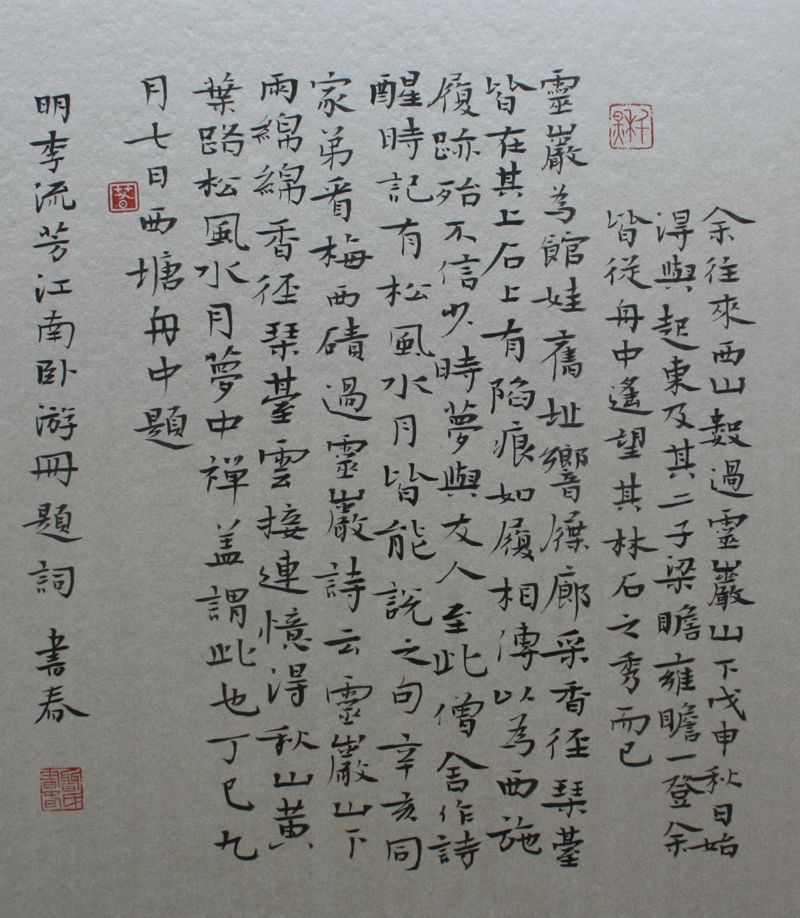 余往來西山數過靈巖山下戊申秋日始
得與起東及其二子梁瞻雍瞻一登余
皆從舟中遙望其林石之秀而已
靈巖為館娃舊址響屧廊采香径琹臺
皆在其上石上有陷痕如履相傳以為西施
履跡殆不信少時夢與友人至此僧舍作詩
醒時記有松風水月皆能說之句辛亥同
家弟看梅西磧過靈巖詩云靈巖山下
雨綿綿香径琹臺雲接連憶得秋山黃
葉路松風水月夢中禪盖謂此也丁巳九
月七日西塘舟中題
明李流芳江南卧游冊題詞 書春